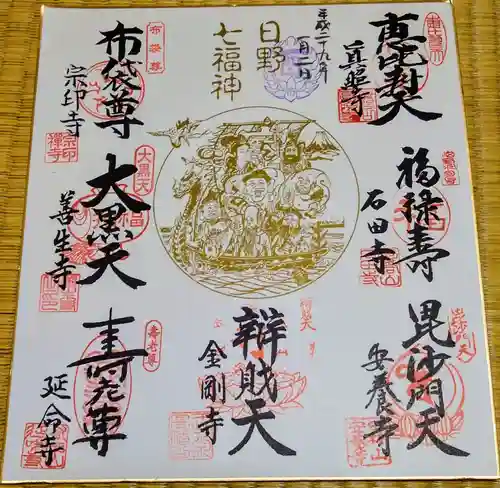 恵比寿天
真照寺
平成二十九年
一月二日
日野
七福神
布袋尊
布袋尊
宗印寺
宗印禅寺
福禄寿
石田寺
大黒天
大黒天
善生寺
毘沙門天
安養寺
辨財天
金剛寺
寿老尊
寿老尊
延命寺